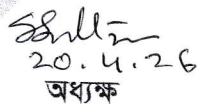 20.4.26
অধ্যক্ষ